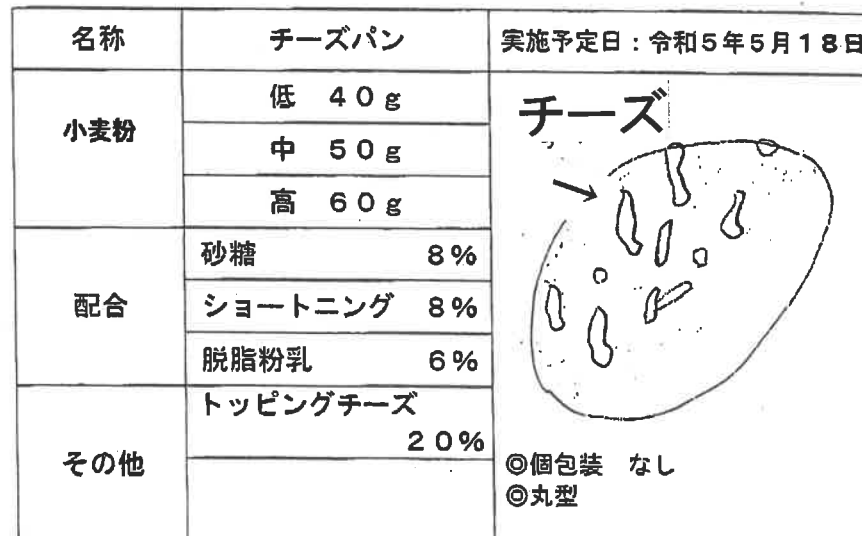 名称 チーズパン 実施予定日：令和5年5月18日
小麦粉
低 40g
中 50g
高 60g
配合
砂糖 8%
ショートニング 8%
脱脂粉乳 6%
その他
トッピングチーズ
20%
チーズ
◎個包装 なし
◎丸型